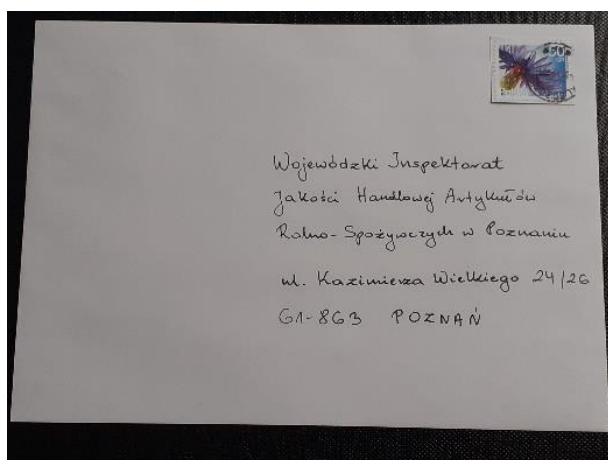 50
Wojewódzki Inspektorat
Jakości Handlowej Artykułów
Rolno-Spożywczych w Poznaniu
ul. Kazimierza Wielkiego 24/26
61-863 POZNAŃ